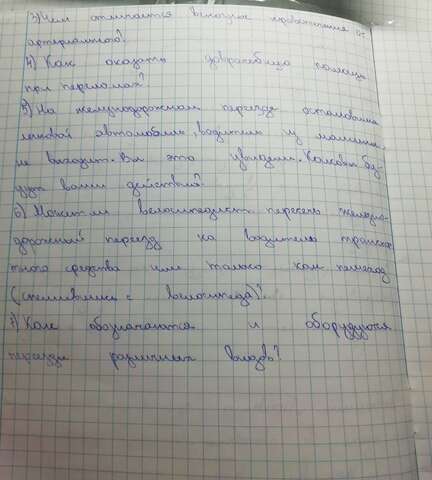 3) Чем отличается венозное кровотечение от
артериального?
4) Как оказать доврачебную помощь
при переломах?
5) На железнодорожном переезде остановился
легковой автомобиль, водитель из машины
не выходит. Вы это увидели. Каковы бу-
дут ваши действия?
6) Может ли велосипедист пересечь железно-
дорожный переезд как водитель транспор-
тного средства или только как пешеход
(спешившись с велосипеда)?
7) Как обозначаются и оборудуются
переезды различных видов?